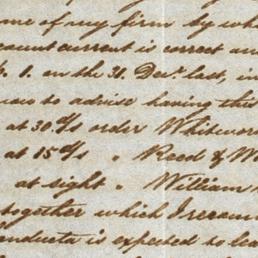 me of my firm by wh
count current is correct an
p. 1. on the 31. Decr. last, in
to advise having this
at 30 d/s order Whitwor
at 15 d/s " Reed & W
at sight " William
together which I
Conducta is expected to lea